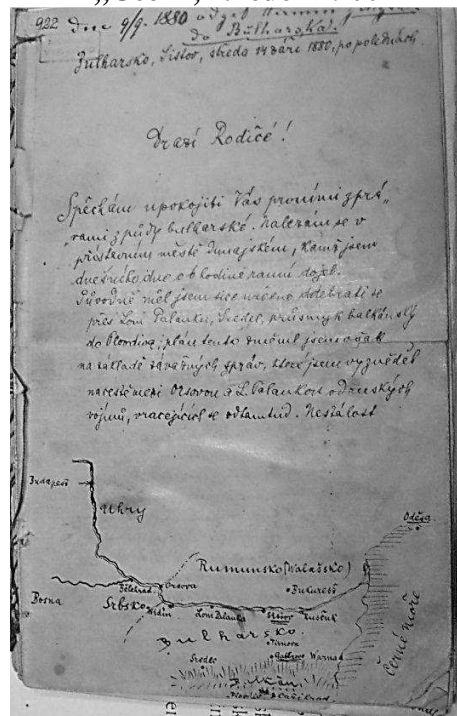 922 Dne 9/9. 1880 odjel
do Bulharska.
Bulharsko, Sistov, středa 14 září 1880, po poledních.
Drazí Rodičé!
Spěchám upokojiti Vás prvními zprá„
„vami z půdy bulharské. Nalezám se v
přístavním městě Dunajském, kamž jsem
dnešního dne o 6 hodině ranní dojel.
Původně měl jsem sice určeno odebrati se
přes Lom Palanku, Sredec, průsmyk balkánský
do Plovdiva, plán tento změnil jsem však
na základě závažných zpráv, které jsem vyzvěděl
na cestě mezi Orsovou a L. Palankou od
vojínů, vracejících se odtamtud. Nestálost
Budapešť
Uhry
Oděsa
Rumunsko (Valašsko)
Bělehrad Orsova
Bukurešť
Bosna
Srbsko Widin Lom Palanka Sistov Rusčuk
Bulharsko
Tirnova
Sredec Gabrovo Warna
Balkán
Černé moře
Plovdiv Cařihrad